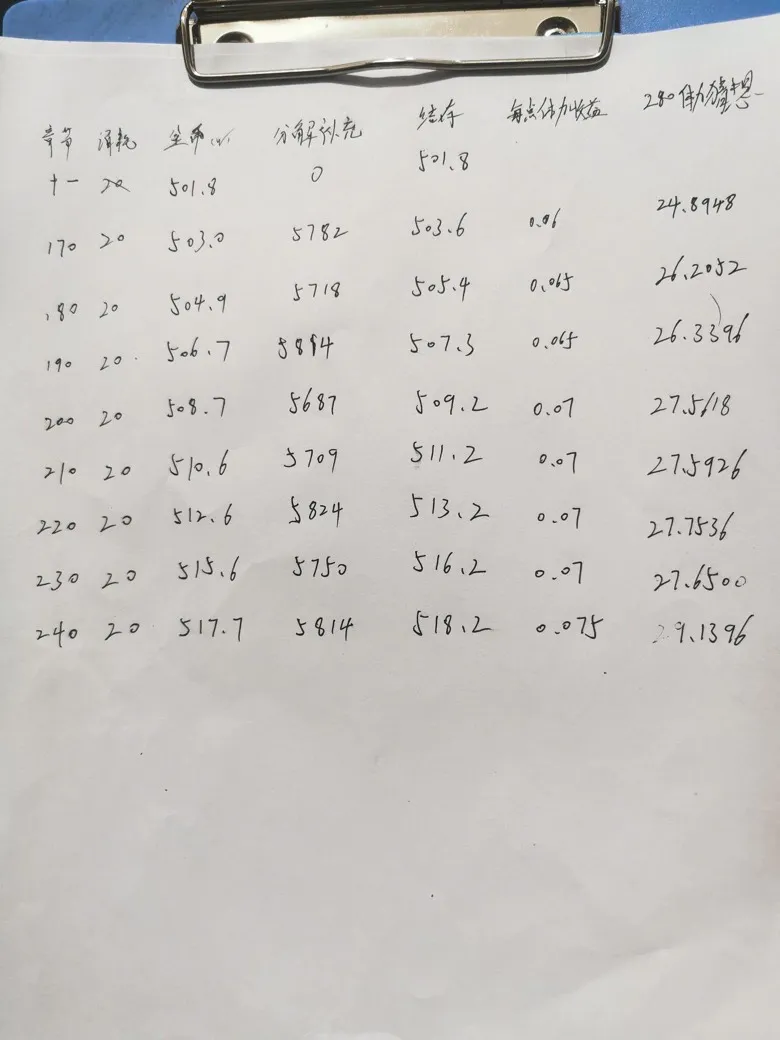 章节 消耗 金币(W) 分解补充 结存 每点体力收益 280体力猜想
十一 20 501.8 0 501.8
170 20 503.0 5782 503.6 0.06 24.8948
180 20 504.9 5718 505.4 0.065 26.2052
190 20 506.7 5814 507.3 0.065 26.3396
200 20 508.7 5687 509.2 0.07 27.5618
210 20 510.6 5709 511.2 0.07 27.5926
220 20 512.6 5824 513.2 0.07 27.7536
230 20 515.6 5750 516.2 0.07 27.6500
240 20 517.7 5814 518.2 0.075 29.1396